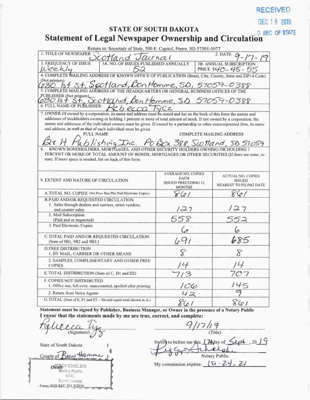 RECEIVED
DEC 16 2019
SD SEC OF STATE
STATE OF SOUTH DAKOTA
Statement of Legal Newspaper Ownership and Circulation
Return to: Secretary of State, 500 E. Capitol, Pierre, SD 57501-5077
1. TITLE OF NEWSPAPER Scotland Journal 2. DATE 9-17-19
3. FREQUENCY OF ISSUE Weekly 3A. NO. OF ISSUES PUBLISHED ANNUALLY 52 3B. ANNUAL SUBSCRIPTION PRICE
4. COMPLETE MAILING ADDRESS OF KNOWN OFFICE OF PUBLICATION (Street, City, County, State and ZIP+4 Code) (Not printers)
Scotland, Bon Homme, SD, 57059-0388
5. COMPLETE MAILING ADDRESS OF THE HEADQUARTERS OF GENERAL BUSINESS OFFICES OF THE PUBLISHERS (Not printers)
Scotland, Bon Homme, SD 57059-0388
6. FULL NAME OF PUBLISHER: Rebecca Tycz
7. OWNER (If owned by a corporation, its name and address must be stated and
FULL NAME COMPLETE MAILING ADDRESS
B & H Publishing Inc. PO Box 388, Scotland, SD 57059
8. KNOWN BONDHOLDERS, MORTGAGEES, AND OTHER SECURITY HOLDERS OWNING OR HOLDING 1 PERCENT OR MORE OF TOTAL AMOUNT OF BONDS, MORTGAGES OR OTHER SECURITIES (If there are none, so state. If more space is needed, list on back of this form.
9. EXTENT AND NATURE OF CIRCULATION
AVERAGE NO. COPIES EACH ISSUED PRECEDING 12 MONTHS
ACTUAL NO. COPIES ISSUED NEAREST TO FILING DATE
A. TOTAL NO. COPIES 861 861
B. PAID AND/OR REQUESTED CIRCULATION
1. Sales through dealers and carriers, street vendors, and counter sales. 127 127
2. Mail Subscription (Paid and or requested) 558 552
3. Paid Electronic Copies 6 6
C. TOTAL PAID AND/OR REQUESTED CIRCULATION (Sum of 9B1, 9B2 and 9B3.) 691 685
D. FREE DISTRIBUTION
1. BY MAIL, CARRIER OR OTHER MEANS 8 8
2. SAMPLES, COMPLIMENTARY AND OTHER FREE COPIES 14 14
E. TOTAL DISTRIBUTION (Sum of C, D1 and D2) 713 707
F. COPIES NOT DISTRIBUTED
1. Office use, left over, unaccounted, spoiled after printing 106 145
2. Return from News Agents 42 9
G. TOTAL (Sum of E, F1 and F2 - Should equal total shown in A.) 861 861
Statement must be signed by Publisher, Business Manager, or Owner in the presence of a Notary Public
I swear that the statements made by me are true, correct, and complete:
Rebecca Tycz 9/17/19
(Signature) (Title)
State of South Dakota
County of Bon Homme
Sworn to before me this 17 day of Sept. 2019
Notary Public
My commission expires: 10-24-21